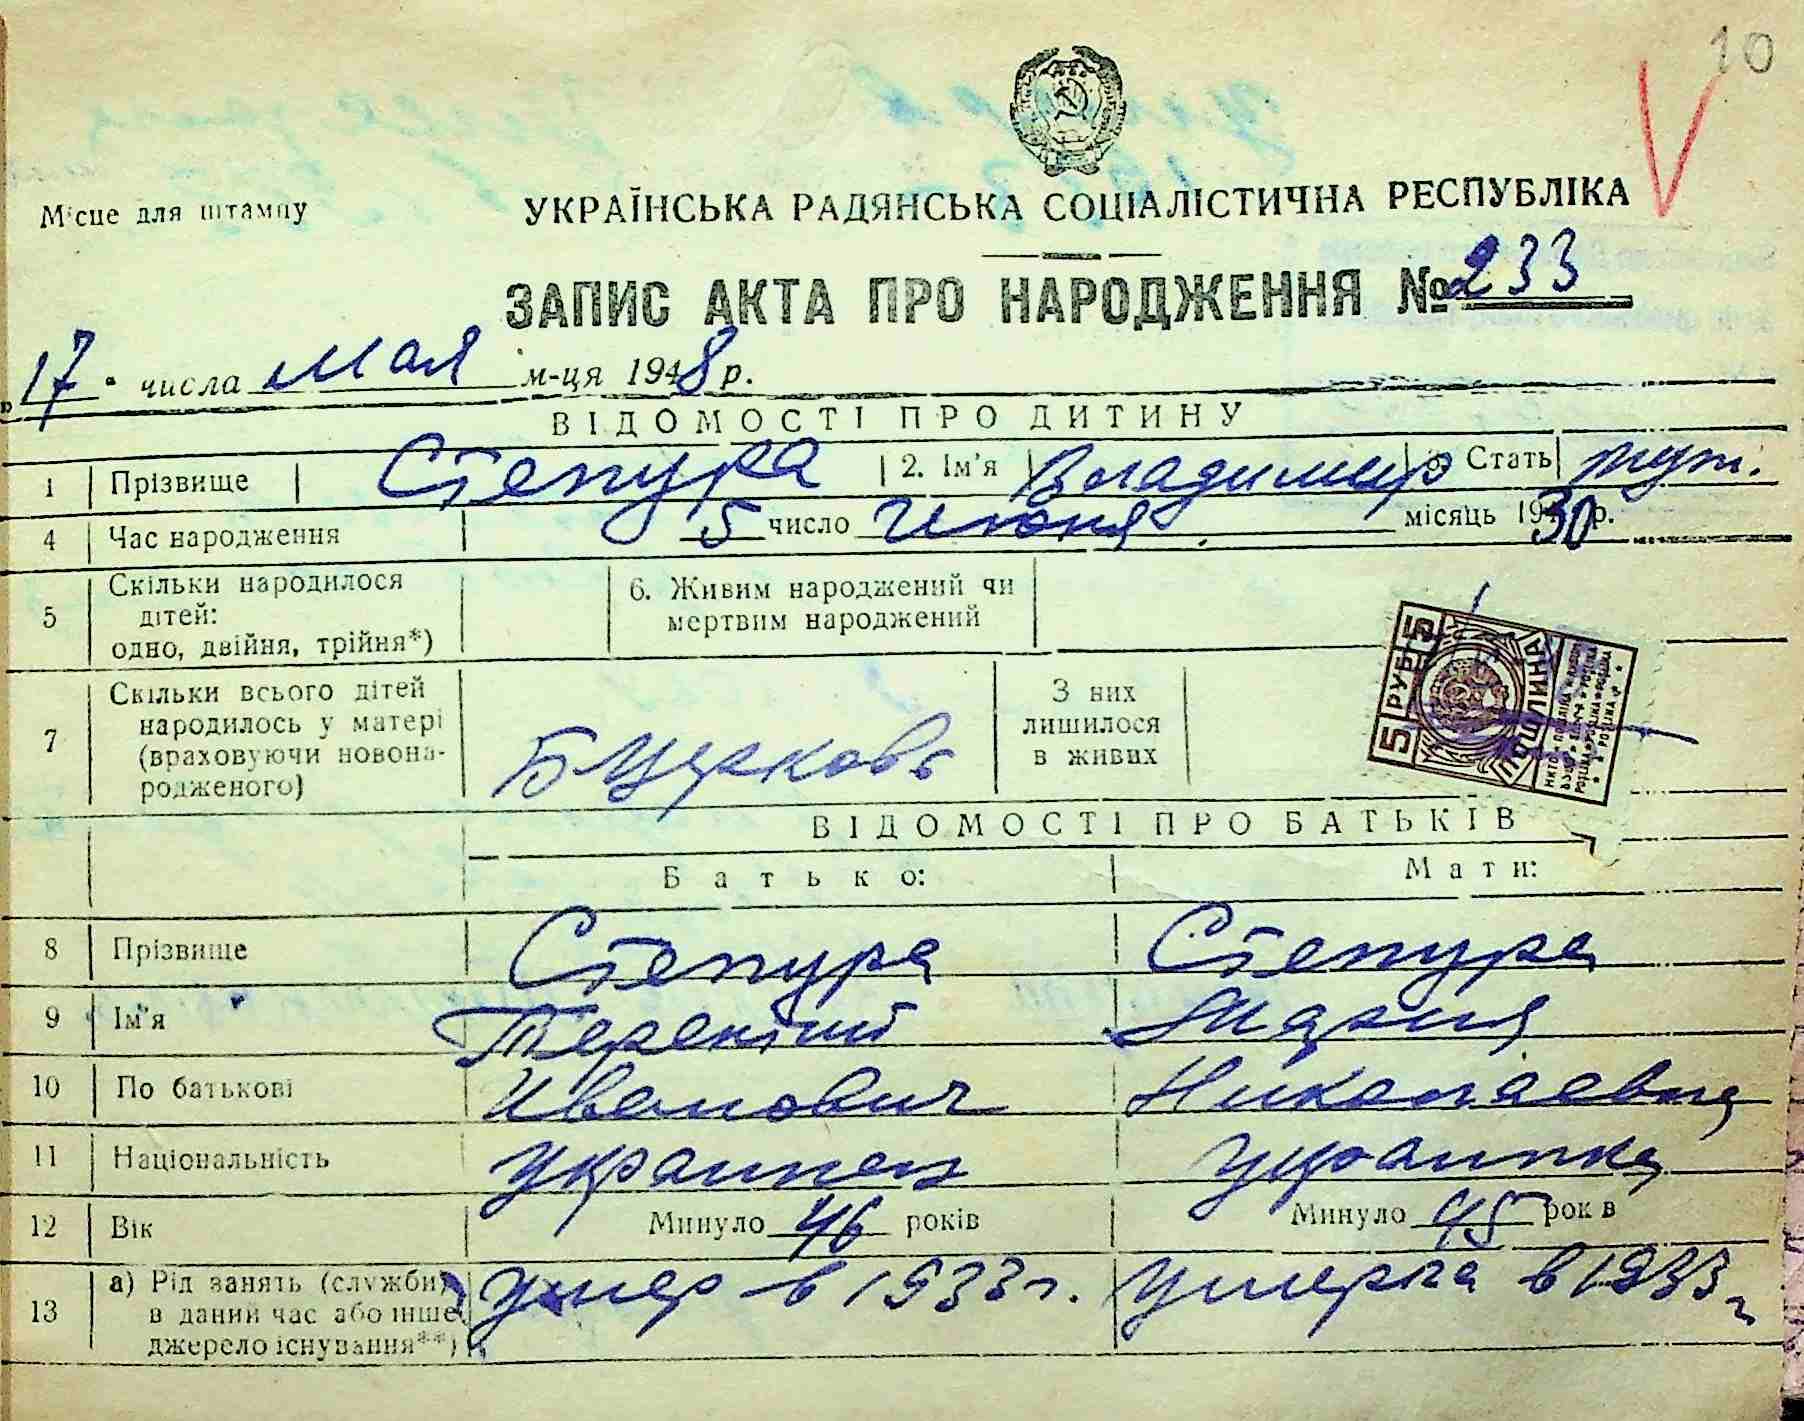 10
Місце для штампу
УКРАЇНСЬКА РАДЯНСЬКА СОЦІАЛІСТИЧНА РЕСПУБЛІКА
ЗАПИС АКТА ПРО НАРОДЖЕННЯ № 233
"17" числа мая м-ця 1948 р.
ВІДОМОСТІ ПРО ДИТИНУ
1 Прізвище Степура 2. Ім'я Владимир 3. Стать муж.
4 Час народження 5 число Июня місяць 1930 р.
5 Скільки народилося
дітей:
одно, двійня, трійня*)
6. Живим народжений чи
мертвим народжений
7 Скільки всього дітей
народилось у матері
(враховуючи новона-
родженого)
Б Церковь
З них
лишилося
в живих
5 РУБ 5
ПОШЛИНА
ВІДОМОСТІ ПРО БАТЬКІВ
Батько: Мати:
8 Прізвище Степура Степура
9 Ім'я Терентий Мария
10 По батькові Иванович Николаевна
11 Національність украинец украинка
12 Вік Минуло 46 років Минуло 45 рок в
13 а) Рід занять (служби)
в даний час або інше
джерело існування**)
умер в 1933 г. умерла в 1933 г